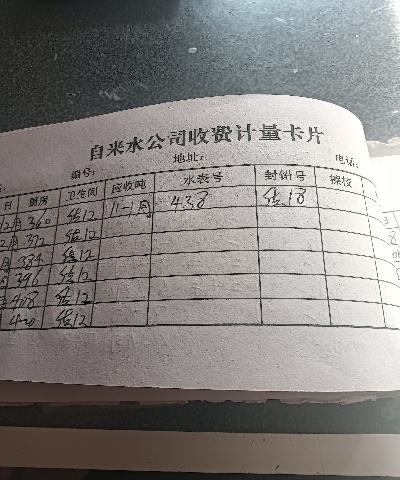 自来水公司收费计量卡片
编号： 地址： 电话：
日 厨房 卫生间 应收吨 水表号 封铅号
2月 360 结12 11-1月 438 结18
2月 372 结12
月 384 结12
396 结12
408 结12
420 结12